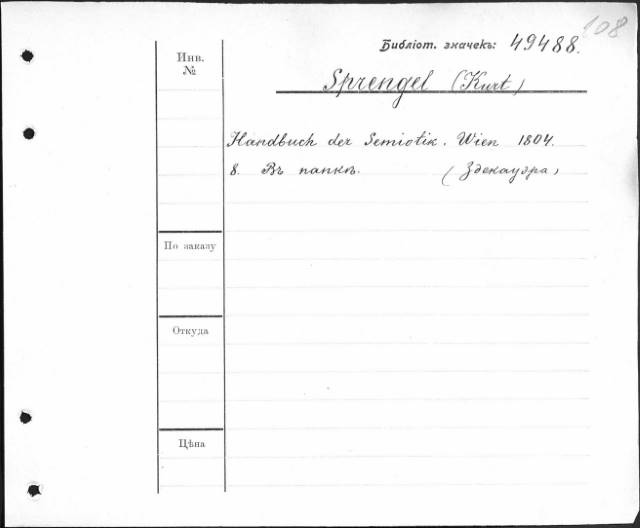 108
Библіот. значекъ: 49488.
Инв.
№
Sprengel (Kurt)
Handbuch der Semiotik. Wien 1804.
8. Въ папкѣ. (Здекауэра)
По заказу
Откуда
Цѣна